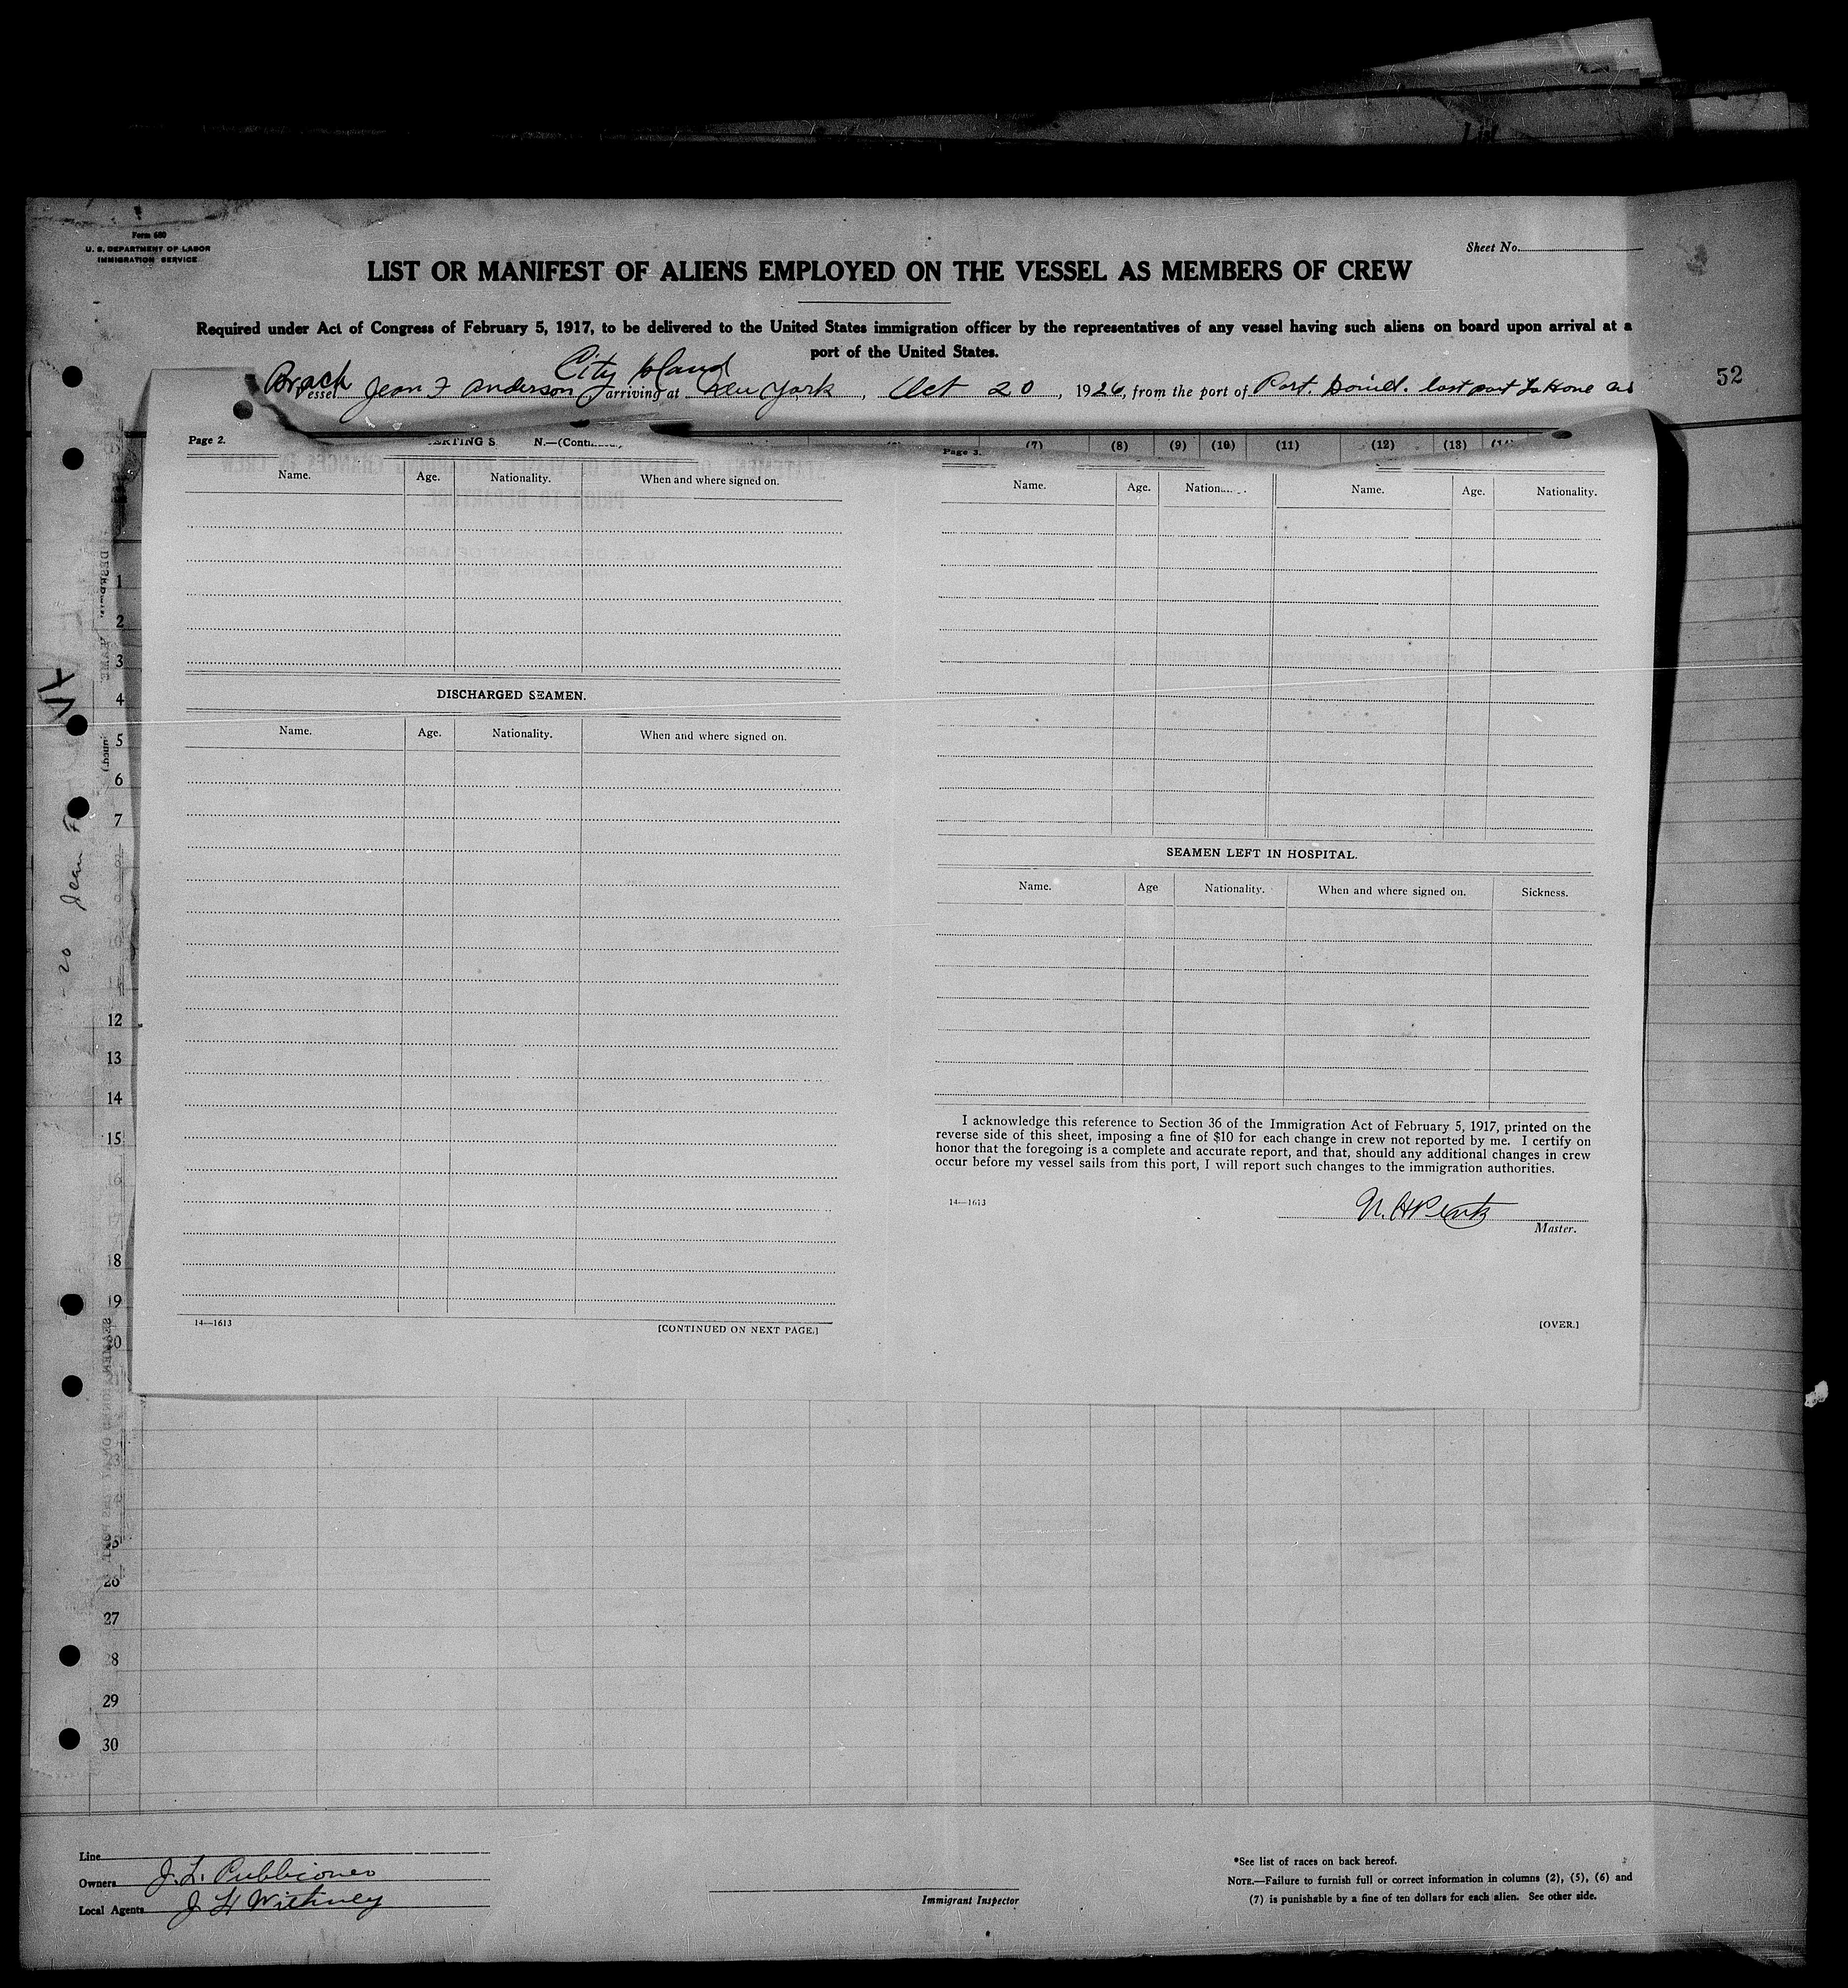 List
Form 680
U. S. DEPARTMENT OF LABOR
IMMIGRATION SERVICE
Sheet No.
LIST OR MANIFEST OF ALIENS EMPLOYED ON THE VESSEL AS MEMBERS OF CREW
Required under Act of Congress of February 5, 1917, to be delivered to the United States immigration officer by the representatives of any vessel having such aliens on board upon arrival at a
port of the United States.
City Island
Vessel Jean F Anderson, arriving at New York, Oct 20, 1926, from the port of Port. last port
52
Page 2. N.—(Conti
Name. Age. Nationality. When and where signed on.
DISCHARGED SEAMEN.
Name. Age. Nationality. When and where signed on.
14—1613
[CONTINUED ON NEXT PAGE.]
(7) (8) (9) (10) (11) (12) (13)
Page 3.
Name. Age. Nation Name. Age. Nationality.
SEAMEN LEFT IN HOSPITAL.
Name. Age Nationality. When and where signed on. Sickness.
I acknowledge this reference to Section 36 of the Immigration Act of February 5, 1917, printed on the
reverse side of this sheet, imposing a fine of $10 for each change in crew not reported by me. I certify on
honor that the foregoing is a complete and accurate report, and that, should any additional changes in crew
occur before my vessel sails from this port, I will report such changes to the immigration authorities.
14—1613
Master.
[OVER.]
1
2
3
4
5
6
7
12
13
14
15
18
19
20
26
27
28
29
30
20 Jean F
Line
Owners J. L.
Local Agents J H
Immigrant Inspector
*See list of races on back hereof.
NOTE.—Failure to furnish full or correct information in columns (2), (5), (6) and
(7) is punishable by a fine of ten dollars for each alien. See other side.